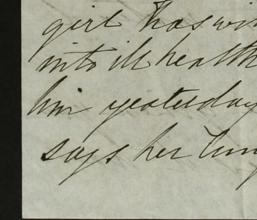 girl has
into ill health
him yesterday
says her